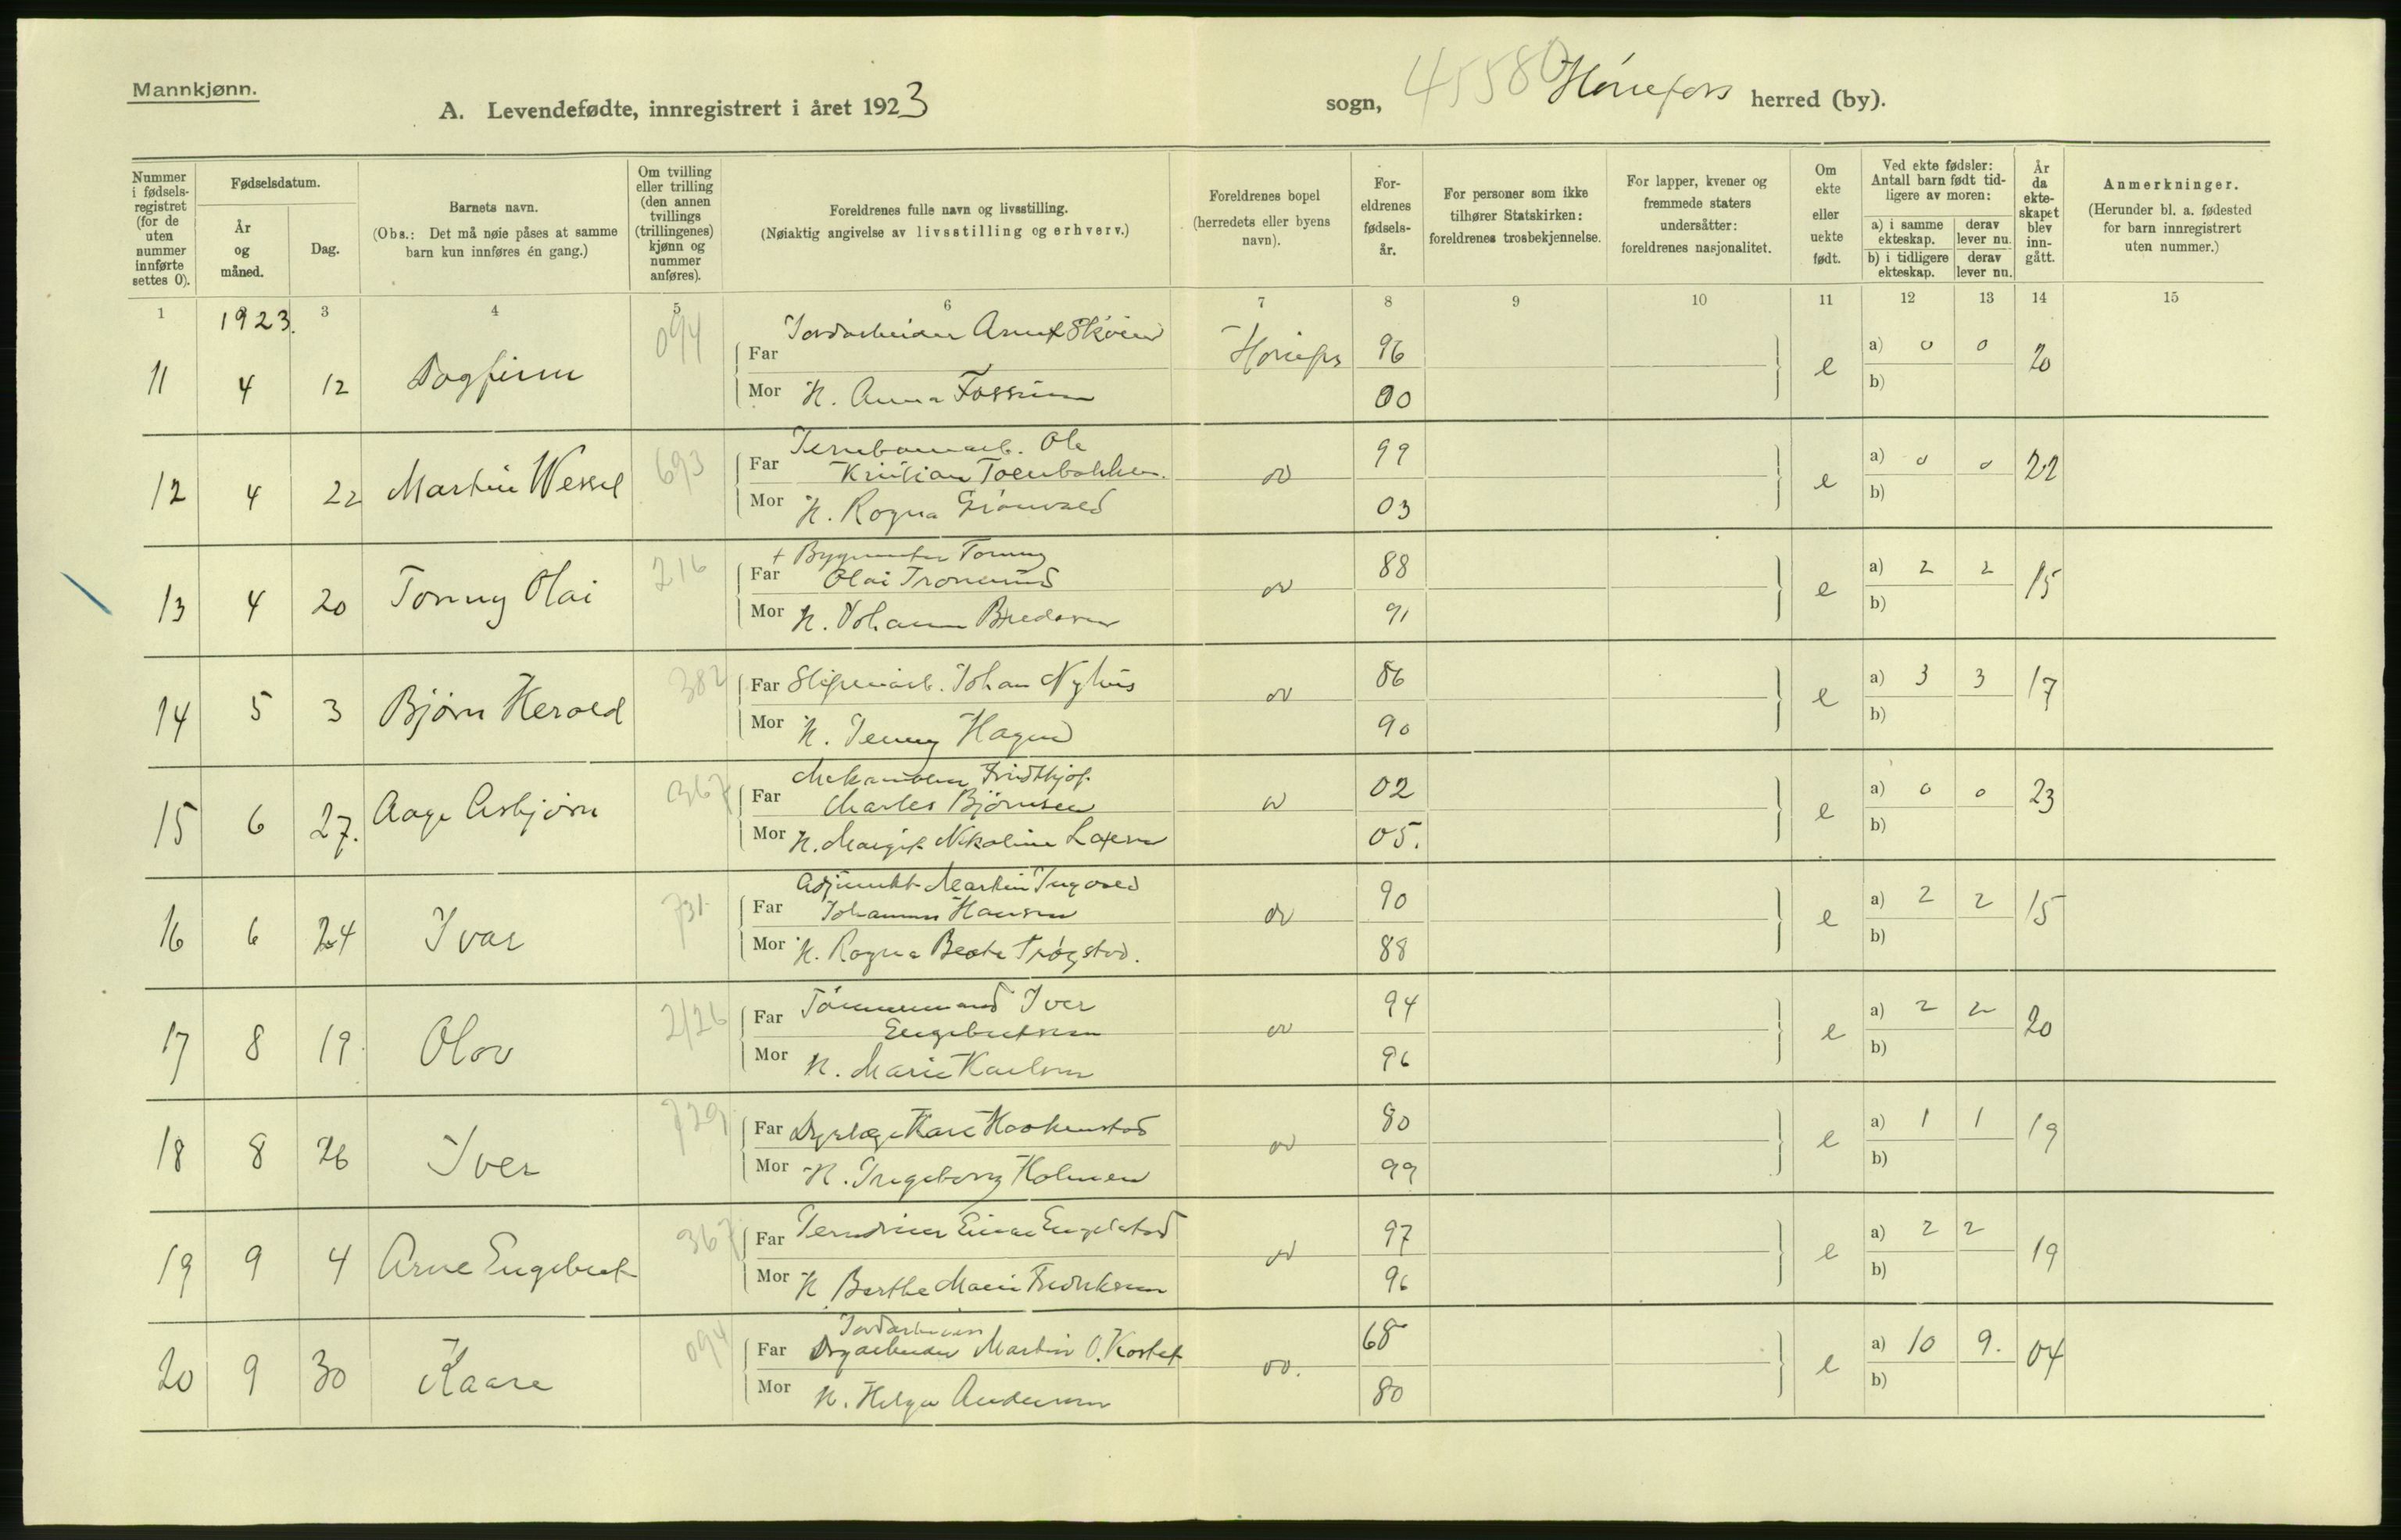 Mannkjønn.
A. Levendefødte, innregistrert i året 1923
sogn, 4558 Hönefoss herred (by).
Nummer i fødsels-registret (for de uten nummer innførte settes 0).
Fødselsdatum.
År og måned.
Dag.
Barnets navn.
(Obs.: Det må nøie påses at samme barn kun innføres én gang.)
Om tvilling eller trilling (den annen tvillings (trillingenes) kjønn og nummer anføres).
Foreldrenes fulle navn og livsstilling.
(Nøiaktig angivelse av livsstilling og erhverv.)
Foreldrenes bopel (herredets eller byens navn).
For-eldrenes fødsels-år.
For personer som ikke tilhører Statskirken: foreldrenes trosbekjennelse.
For lapper, kvener og fremmede staters undersåtter: foreldrenes nasjonalitet.
Om ekte eller uekte født.
Ved ekte fødsler: Antall barn født tidligere av moren:
a) i samme ekteskap. derav lever nu.
b) i tidligere ekteskap. derav lever nu.
År da ekte-skapet blev inn-gått.
Anmerkninger.
(Herunder bl. a. fødested for barn innregistrert uten nummer.)
1 3 4 5 6 7 8 9 10 11 12 13 14 15
1923.
11 4 12 Dagfinn 094
Far Jordarbeider Arnt Skoien Hönefos 96 e a) 0 0 20
Mor H. Anna Fossum 00 b)
12 4 22 Martin Wessel 693
Far Jernbanearb. Ole
Kristian Toenbakken do 99 e a) 0 0 22
Mor H. Ragna Grönvold 03 b)
13 4 20 Tonny Olai 216
Far + Bygmester Tonny
Olai Tronerud do 88 e a) 2 2 15
Mor H. Johanne Bredesen 91 b)
14 5 3 Bjørn Herold 382
Far Sliperiarb. Johan Nyhus do 86 e a) 3 3 17
Mor H. Jenny Hagen 90 b)
15 6 27. Aage Asbjörn 367
Far Mekaniker Fridthjof
Charles Björnsen do 02 e a) 0 0 23
Mor H. Margit Nikoline 05. b)
16 6 24 Ivar 731
Far Adjunkt Martin Ingvald
Johannes Hansen do 90 e a) 2 2 15
Mor H. Ragna Beate Trøgstad. 88 b)
17 8 19 Olav 2/26
Far Tömmermand Iver
Engebretsen do 94 e a) 2 2 20
Mor H. Marie Karlsen 96 b)
18 8 26 Iver 729
Far Dyrlæge Kare Haakenstad do 80 e a) 1 1 19
Mor H. Ingeborg Holmen 99 b)
19 9 4 Arne Engebret 367
Far Jerndreier Einar Engelstad do 97 e a) 2 2 19
Mor H Berthe Marie Fredriksen 96 b)
20 9 30 Kaare 094
Jordarbeider
Far Martin O. do. 68 e a) 10 9. 04
Mor H. Helga Andersen 80 b)